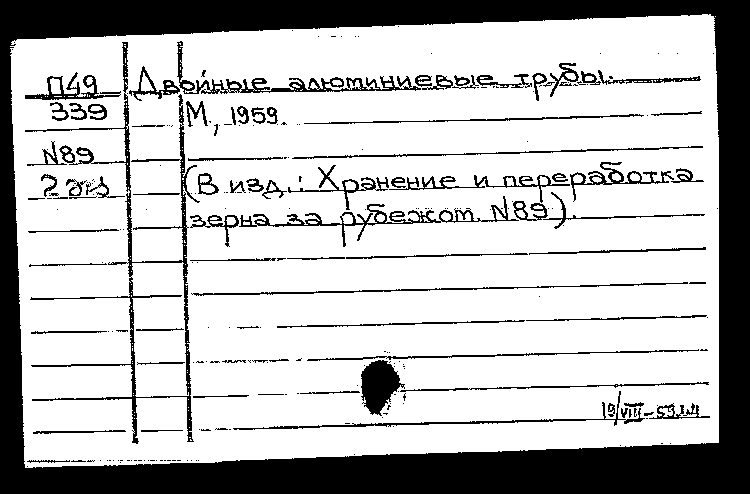 П49 Двойные алюминиевые трубы.
339 М, 1959.
N89
2 экз (В изд.: Хранение и переработка
зерна за рубежом. N89).
19/VIII-59.